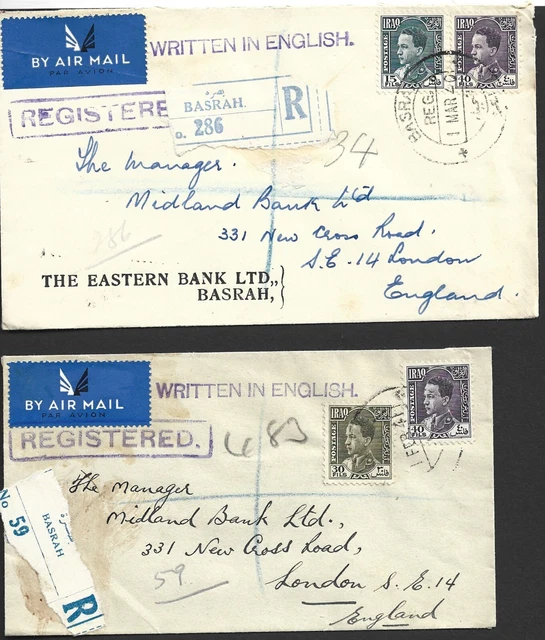 BY AIR MAIL
PAR AVION
WRITTEN IN ENGLISH.
IRAQ
POSTAGE
15 FILS
IRAQ
POSTAGE
40 FILS
REGISTERE
بصرة
BASRAH.
o. 286
R
BASRA
REG.
1 MAR 40
34
The Manager.
Midland Bank Ltd
331 New Cross Road.
S.E. 14 London
England.
286
THE EASTERN BANK LTD.,
BASRAH,
BY AIR MAIL
PAR AVION
WRITTEN IN ENGLISH.
IRAQ
POSTAGE
30 FILS
IRAQ
POSTAGE
40 FILS
REGISTERED.
483
FEB 41
No 59
بصرة
BASRAH
R
The Manager
Midland Bank Ltd.,
331 New Cross Road,
59.
London S.E.14
England